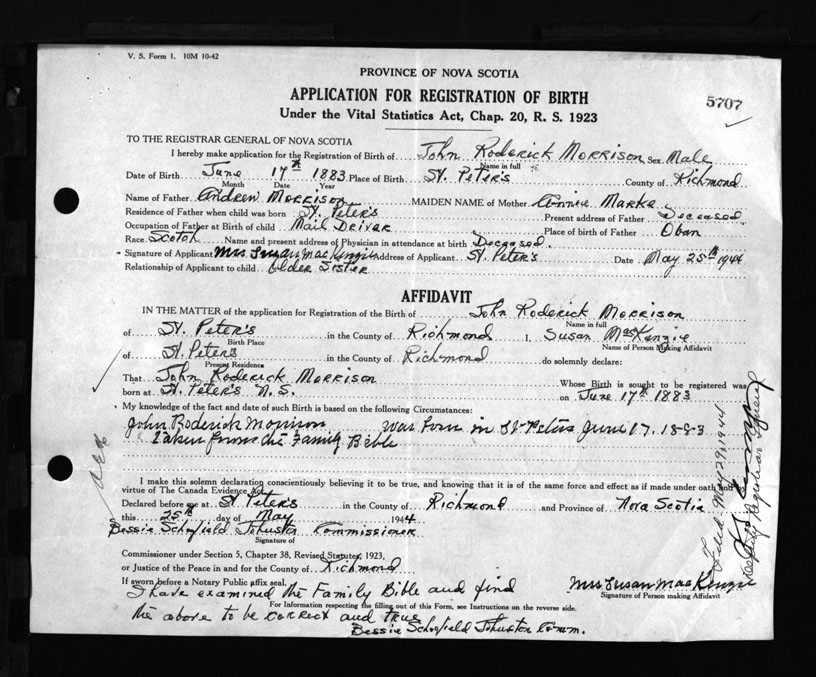 V. S. Form 1. 10M 10-42
PROVINCE OF NOVA SCOTIA
APPLICATION FOR REGISTRATION OF BIRTH
5707
Under the Vital Statistics Act, Chap. 20, R. S. 1923
TO THE REGISTRAR GENERAL OF NOVA SCOTIA
I hereby make application for the Registration of Birth of John Roderick Morrison Sex Male
Name in full
Date of Birth June 17th 1883 Place of Birth St. Peter's County of Richmond
Month Date Year
Name of Father Andrew Morrison MAIDEN NAME of Mother Annie Marks
Residence of Father when child was born St. Peter's Present address of Father Deceased
Occupation of Father at Birth of child Mail Driver Place of birth of Father Oban
Race Scotch Name and present address of Physician in attendance at birth Deceased.
Signature of Applicant Mrs Susan MacKenzie Address of Applicant St. Peter's Date May 25th 1944
Relationship of Applicant to child Older Sister
AFFIDAVIT
IN THE MATTER of the application for Registration of the Birth of John Roderick Morrison
Name in full
of St. Peter's in the County of Richmond I, Susan MacKenzie
Birth Place Name of Person Making Affidavit
of St. Peter's in the County of Richmond do solemnly declare:
Present Residence
That John Roderick Morrison Whose Birth is sought to be registered was
born at St. Peter's N.S. on June 17th 1883
My knowledge of the fact and date of such Birth is based on the following Circumstances:
John Roderick Morrison was born in St Peters June 17, 1883
Taken from the Family Bible
I make this solemn declaration conscientiously believing it to be true, and knowing that it is of the same force and effect as if made under oath and
virtue of The Canada Evidence Act.
Declared before me at St Peter's in the County of Richmond and Province of Nova Scotia
this 25th day of May 1944
Bessie Schofield Johnston Commissioner
Signature of
Commissioner under Section 5, Chapter 38, Revised Statutes, 1923,
or Justice of the Peace in and for the County of Richmond
If sworn before a Notary Public affix seal.
I have examined the Family Bible and find
Mrs Susan MacKenzie
Signature of Person making Affidavit
For Information respecting the filling out of this Form, see Instructions on the reverse side.
the above to be correct and true
Bessie Schofield Johnston Comm.
Filed May 29, 1944
Deputy Registrar General